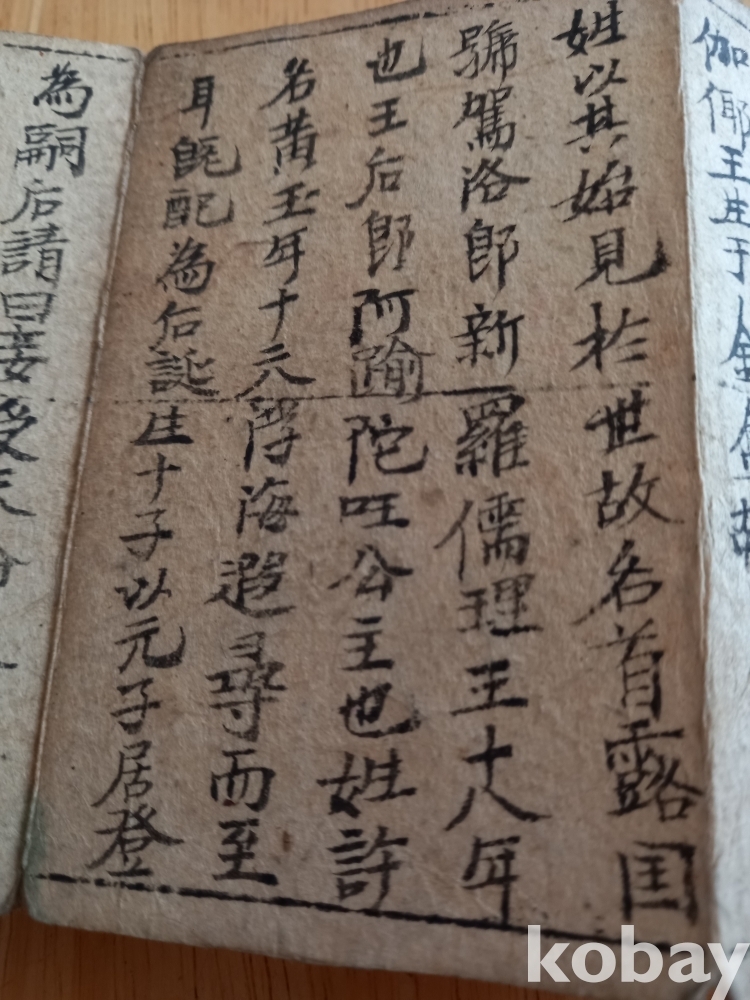 伽倻王生于金
姓以其始見於世故名首露国
號駕洛即新羅儒理王十八年
也王后即阿踰陀国公主也姓許
名黄玉年十六浮海遐尋而至
耳既配為后誕生十子以元子居登
為嗣后請曰妾
kobay